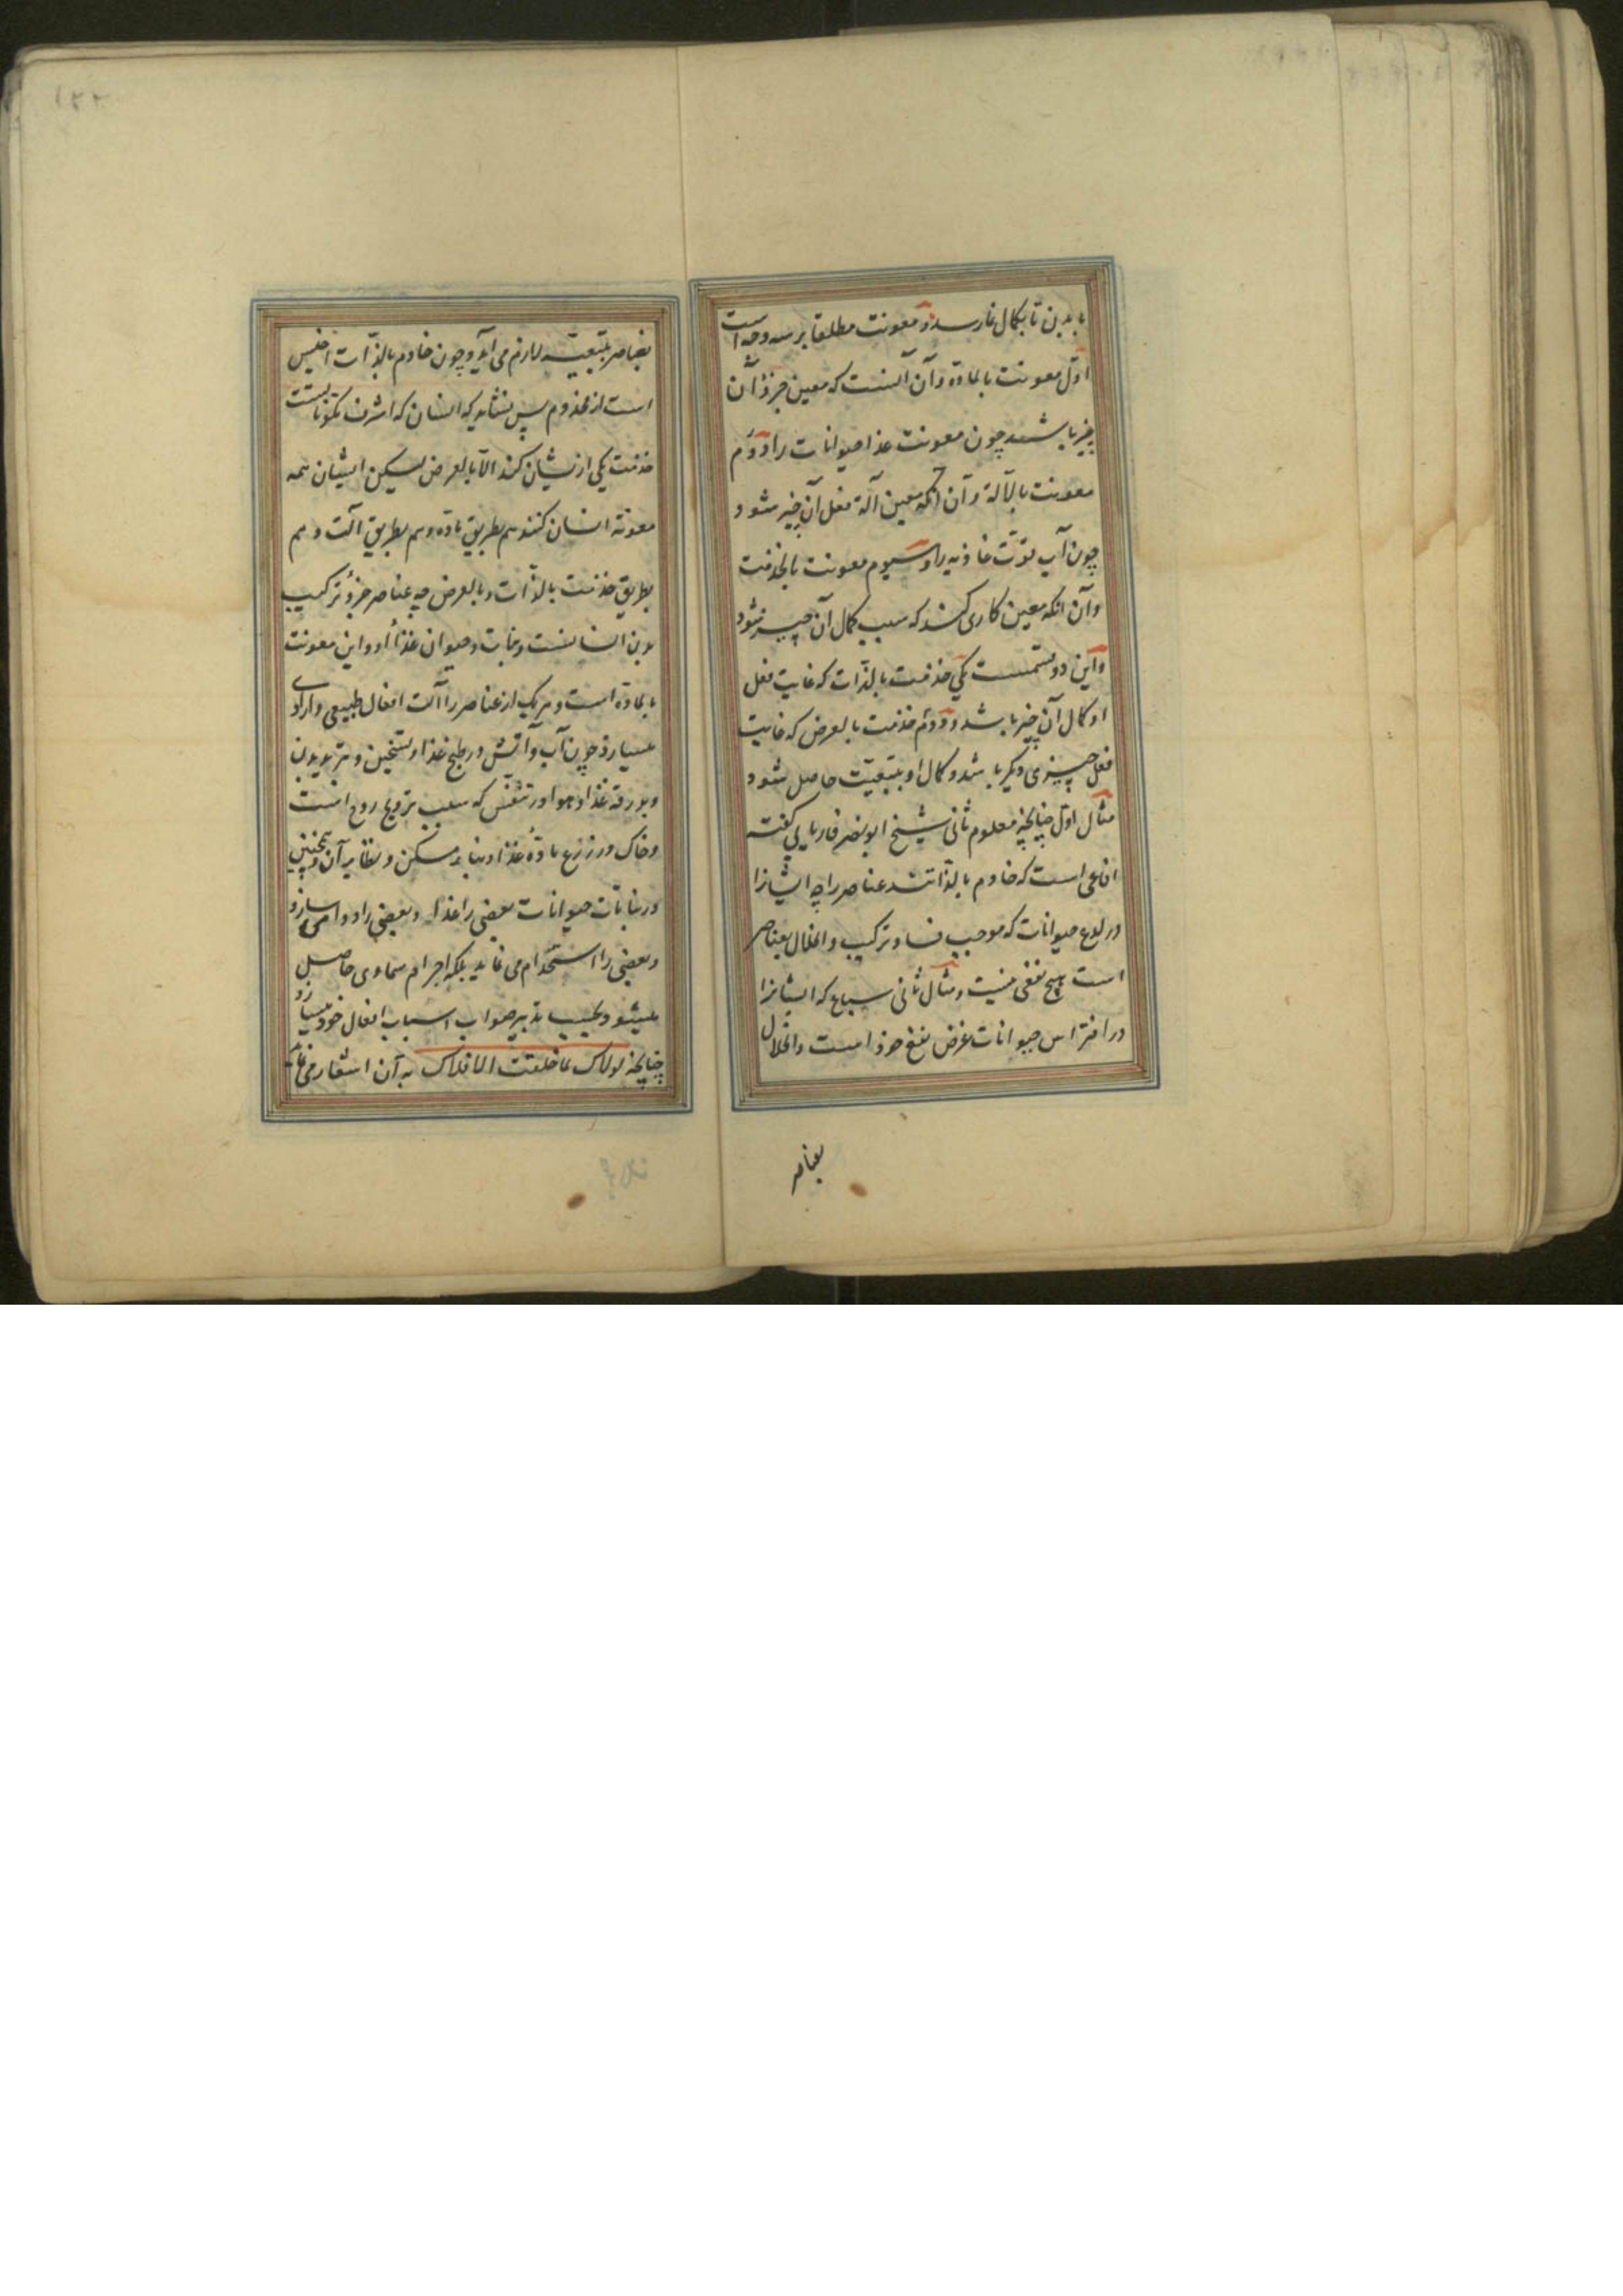 یا بدین تا بکمال نمارسد و معونت مطلقا بر سه وجه است
اوّل معونت بالمادة و آن آنست که معین جزوُ آن
چیز باشد چون معونت غذا حیوانات را و دوُم
معونت بالآلة و آن آنکه معین آلة فعل آن چیز شود
چون آب قوّت غاذیه را و سیوم معونت بالخدمت
و آن انکه معین کاری کند که سبب کمال آن چیز شود
و این دو قسمست یکی خدمت بالذات که غایت فعل
او کمال آن چیز باشد و دوُم خدمت بالعرض که غایت
فعل چیزی دیگر باشد و کمال او بتبعیّت حاصل شود
مثال اوّل چنانچه معلوم ثانی شیخ ابونصر فاریابی کفته
افاعی است که خادم بالذاتند عناصر را چه ایشانرا
در لدغ حیوانات که موجب فساد ترکیب و انحلال بعناصر
است هیچ نفعی نیست و مثال ثانی سباع که ایشانرا
در افتراس حیوانات غرض نفع خود است و انحلال
بعناصر
۱۲۲
بعناصر بتبعیّت لازم می آید و چون خادم بالذّات اخسّ
است از مخدوم پس نشاید که انسان که اشرف مکونات است
خدمت یکی ازیشان کند الّا بالعرض لیکن ایشان همه
معونة انسان کنند هم بطریق مادّه و هم بطریق آلت و هم
بطریق خدمت بالذّات و بالعرض چه عناصر جزوُ ترکیب
بدن انسانست و نبات و حیوان غذاُ او و این معونت
بالمادّه است و هر یک از عناصر را آلت افعال طبیعی و ارادی
میسازد چون آب و آتش در طبخ غذا و تسخین و تبرید بدن
و بدرقه غذا و هوا در تنفّس که سبب ترویح روح است
و خاک در زرع مادّهُ غذا و بناء مسکن و نظایر آن و همچنین
در نباتات حیوانات بعضی را غذا و بعضی را دوا میسازد
و بعضی را استخدام می نماید بلکه اجرام سماوی حاصل
میشود بحسب تدبیر صواب اسباب افعال خود میسازد
چنانچه لولاک لما خلقت الافلاک به آن اشعار می نماید